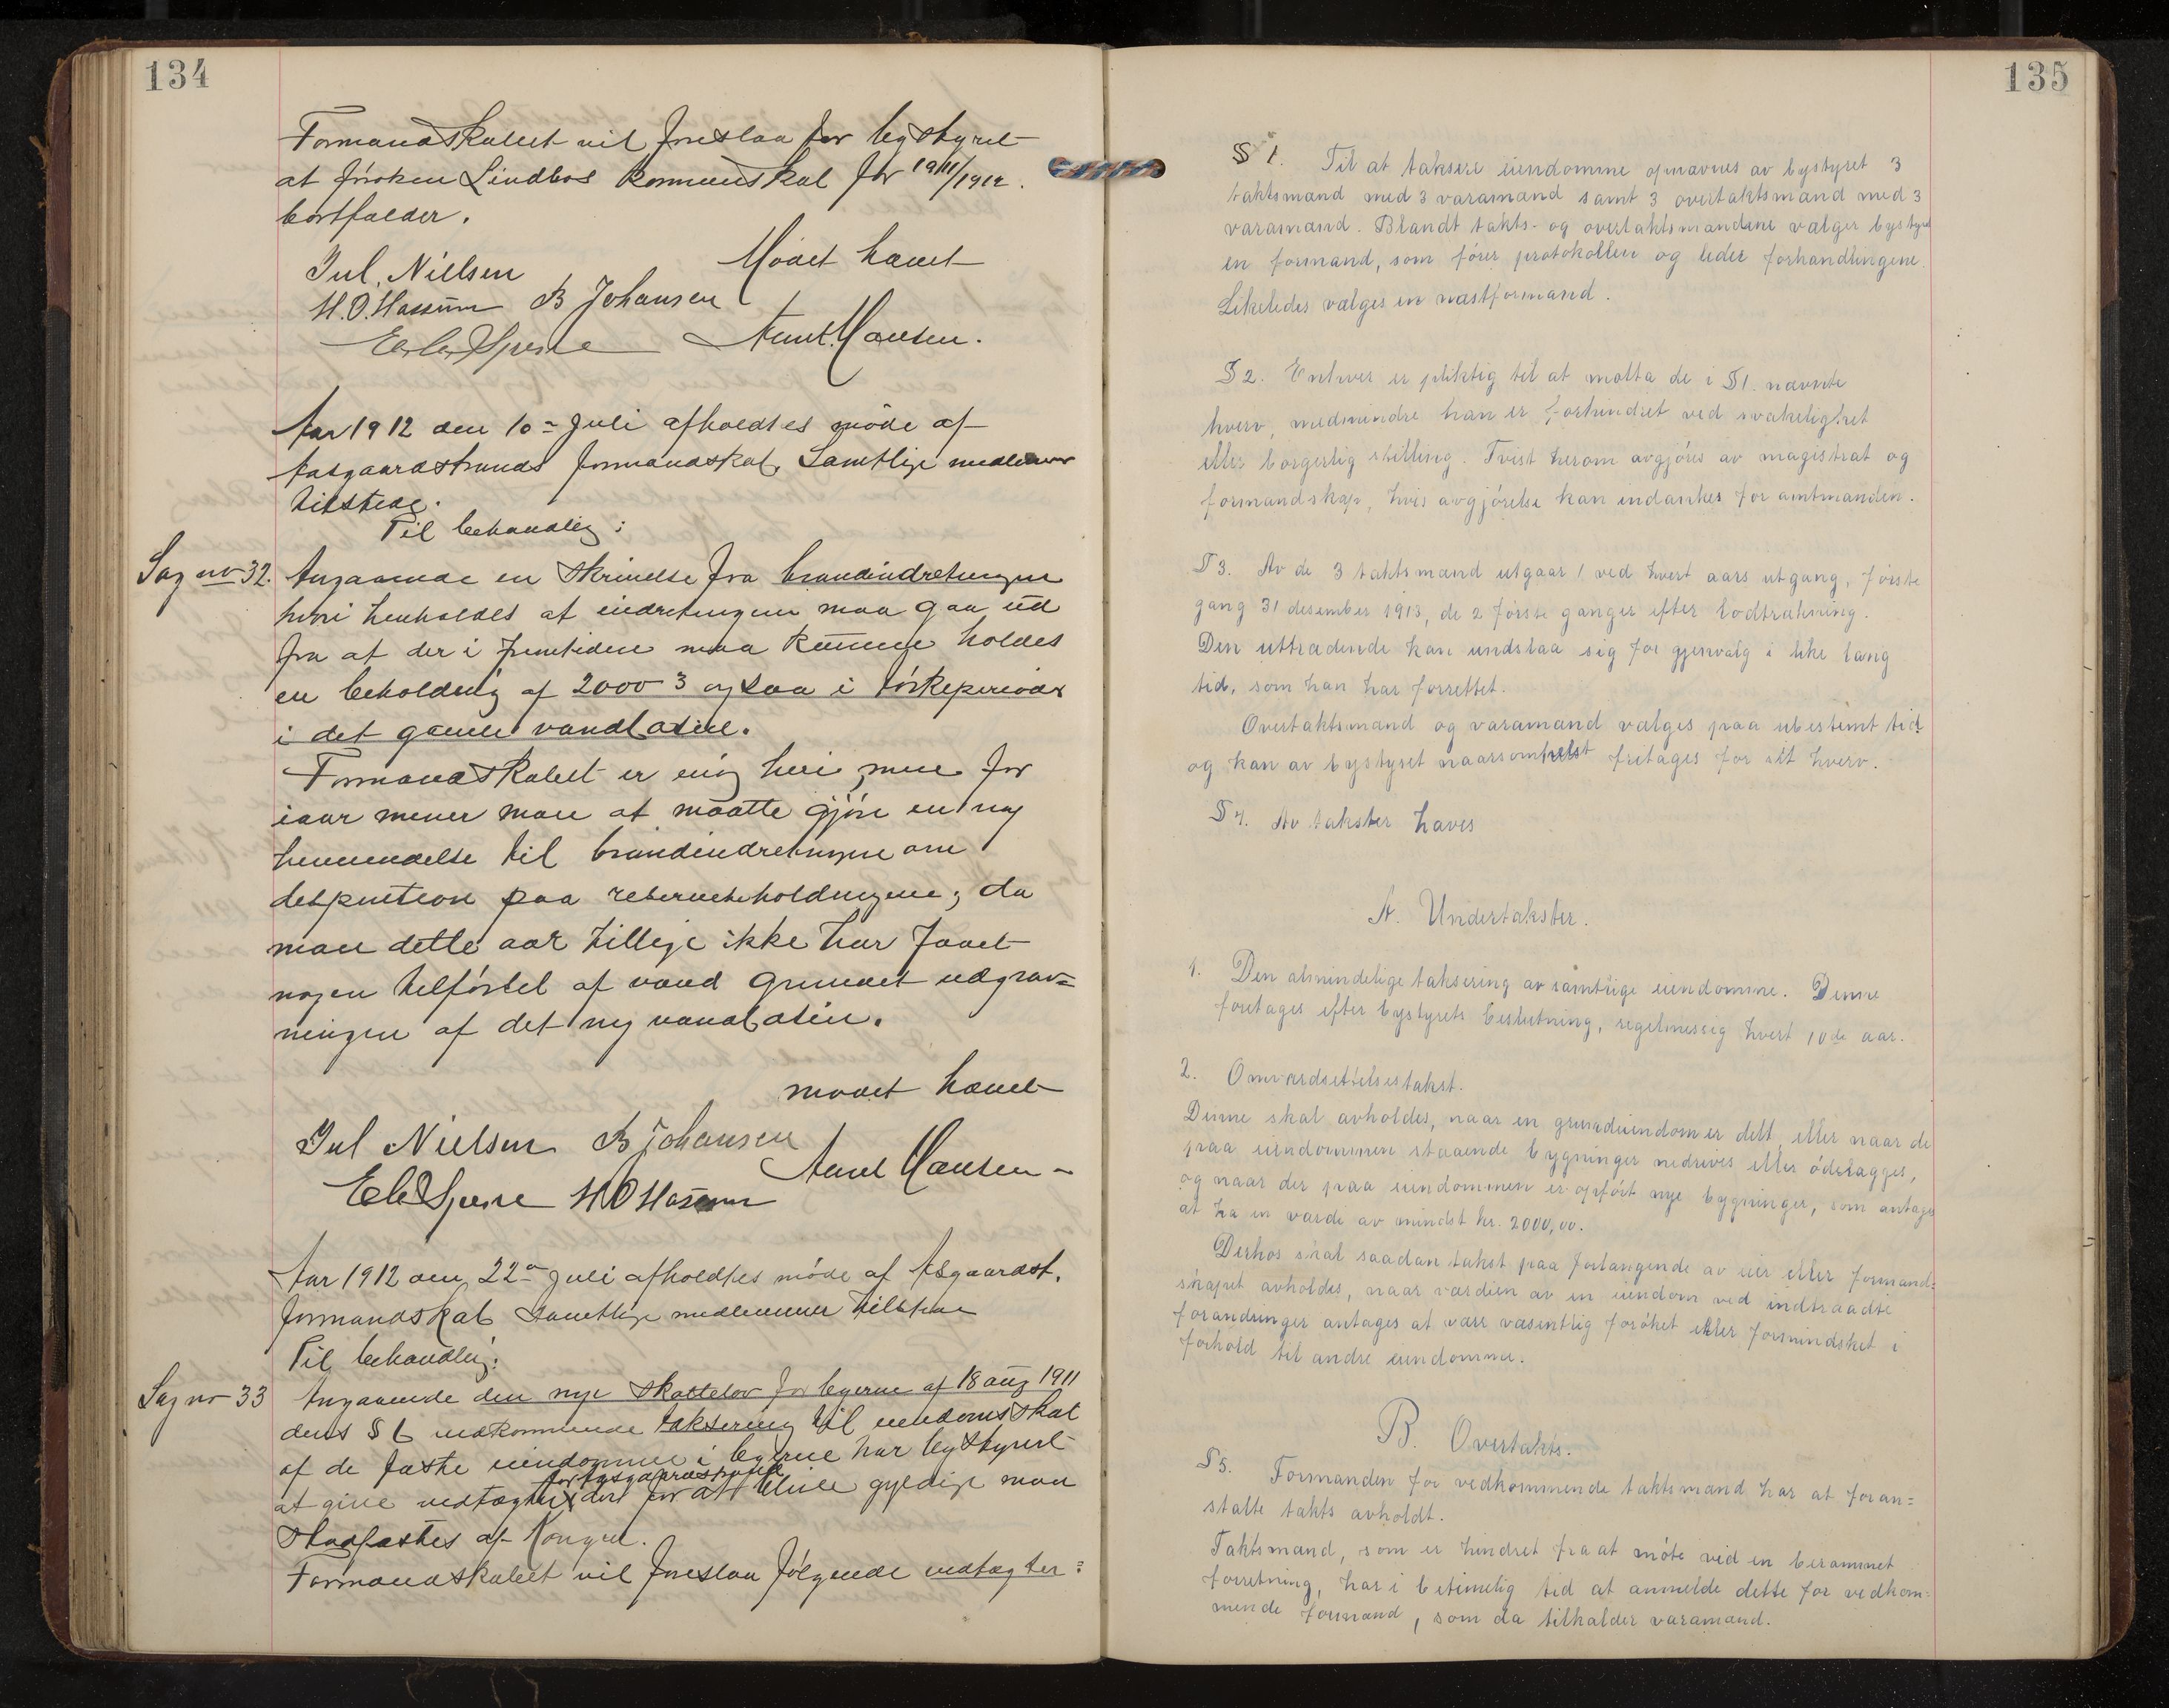 134
Formandskabet vil foreslaa for bystyret
at frøken Lindbos kommuneskat for 1911/1912.
bortfalder.
Mødet hævet
Jul. Nielsen
H. O. Hassum B Johansen
Aunt. Hansen.
Aar 1912 den 10de Juli afholdtes møde af
Aasgaardstrands formandskab, Samtlige medlemmer
tilstede.
Til behandlig:
Sag no 32. Angaaende en skrivelse fra brandindretningen
hvori henholdes at indretningen maa gaa ud
fra at der i fremtiden maa kunne holdes
en beholdnig af 2000 3 ogsaa i tørkeperioder
i det gamle vandbasin.
Formandskabet er enig heri, men for
iaar mener man at maatte gjøre en ny
henvendelse til brandindretningen om
despention paa reservebeholdningene; da
man dette aar tillige ikke har faaet
nogen tilførsel af vand grundet udgrav=
ningen af det ny vandbasin.
mødet hævet
Jul Nielsen B Johansen
Aunt Hansen
H O Hassum
Aar 1912 den 22de Juli afholdtes møde af Asgaardst.
formandskab samtlige medlemmer tilstede
Til behandlig:
Sag no 33 Angaaende den nye skattelov for byerne af 18 aug 1911
dens § 6 vedkommende taksering til eiendomsskat
af de faste eiendomme i byerne har bystyret
for Aasgaardstrand
at give vedtægter der for at blive gyldige maa
stadfæstes af Kongen.
Formandskabet vil foreslaa følgende vedtægter:
135
§ 1. Til at taksere eiendomme opnævnes av bystyret 3
takstmænd med 3 varamænd samt 3 overtakstmænd med 3
varamænd. Blandt takts- og overtaktsmændene vælger bystyret
en formand, som fører protokollen og leder forhandlingene.
Likeledes vælges en næstformand.
§ 2. Enhver er pliktig til at motta de i § 1. nævnte
hverv, medmindre han er forhindret ved svakelighet
eller borgerlig stilling. Tvist herom avgjøres av magistrat og
formandskap, hvis avgjørelse kan indankes for amtmanden.
§ 3. Av de 3 taktsmænd utgaar 1 ved hvert aars utgang, første
gang 31 desember 1913, de 2 første ganger efter lodtrækning.
Den uttrædende kan undslaa sig for gjenvalg i like lang
tid, som han har forrettet.
Overtaktsmænd og varamænd vælges paa ubestemt tid
og kan av bystyret naarsomhelst fritages for sit hverv.
§ 4. Av takster haves
A. Undertakster.
1. Den almindelige taksering av samtlige eiendomme. Denne
foretages efter bystyrets beslutning, regelmessig hvert 10de aar.
2. Omværdsettelsestakst.
Denne skal avholdes, naar en grundeiendom er delt, eller naar de
paa eiendommen staaende bygninger nedrives eller ødelægges,
og naar der paa eiendommen er opført nye bygninger, som antages
at ha en værdi av mindst kr. 2000,00.
Derhos skal saadan takst paa forlangende av eier eller formand=
skapet avholdes, naar værdien av en eiendom ved indtraadte
forandringer antages at være væsentlig forøket eller formindsket i
forhold til andre eiendomme.
B. Overtakts.
§ 5. Formanden for vedkommende taktsmænd har at foran=
stalte takts avholdt.
Taktsmand, som er hindret fra at møte ved en berammet
forretning, har i betimelig tid at anmelde dette for vedkom=
mende formand, som da tilkalder varamand.